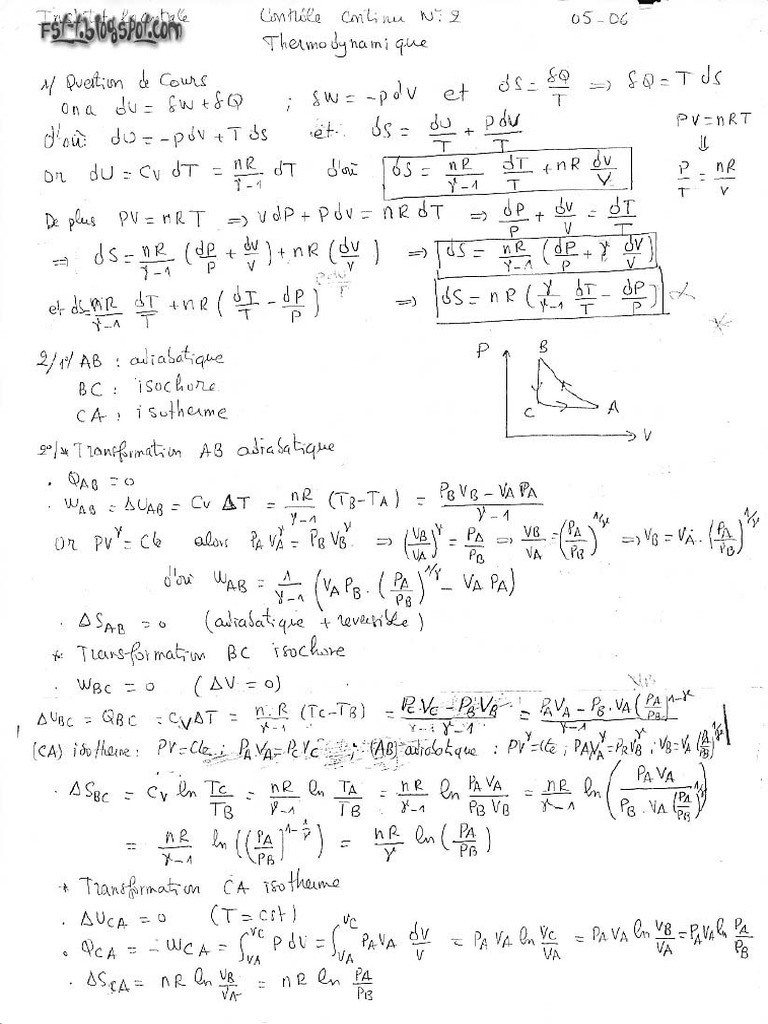 Fst-t.blogspot.com
Contrôle Continu N°: 2 05-06
Thermodynamique
1/ Question de Cours
On a dU = δW + δQ ; δW = -pdV et dS = δQ/T ⟹ δQ = T dS
d'où: dU = -pdV + T dS et: dS = dU/T + PdV/T
PV = nRT
⇓
P/T = nR/V
Or dU = Cv dT = nR/(γ-1) dT d'où dS = nR/(γ-1) dT/T + nR dV/V
De plus PV = nRT ⟹ VdP + PdV = nRdT ⟹ dP/P + dV/V = dT/T
⟹ dS = nR/(γ-1) (dP/P + dV/V) + nR (dV/V) ⟹ dS = nR/(γ-1) (dP/P + γ dV/V)
et dS = nR/(γ-1) dT/T + nR (dT/T - dP/P) ⟹ dS = nR (γ/(γ-1) dT/T - dP/P)
2/ 1°/ AB : adiabatique
BC : isochore
CA : isotherme
P B C A V
2°/ * Transformation AB adiabatique
. Q_AB = 0
. W_AB = ΔU_AB = Cv ΔT = nR/(γ-1) (T_B - T_A) = (P_B V_B - V_A P_A)/(γ-1)
Or PV^γ = Cte alors P_A V_A^γ = P_B V_B^γ ⟹ (V_B/V_A)^γ = P_A/P_B ⟹ V_B/V_A = (P_A/P_B)^1/γ ⟹ V_B = V_A . (P_A/P_B)^1/γ
d'où W_AB = 1/(γ-1) (V_A P_B . (P_A/P_B)^1/γ - V_A P_A)
. ΔS_AB = 0 (adiabatique + reversible)
* Transformation BC isochore
. W_BC = 0 (ΔV = 0)
V_B
ΔU_BC = Q_BC = Cv ΔT = n.R/(γ-1) (T_C - T_B) = (P_C.V_C - P_B V_B)/(γ-1) = (P_A V_A - P_B . V_A (P_A/P_B)^1-γ)/(γ-1)
(CA) isotherme : PV = Cte ; P_A V_A = P_C V_C ; (AB) adiabatique : PV^γ = Cte ; P_A V_A^γ = P_B V_B^γ ; V_B = V_A (P_A/P_B)^1/γ
. ΔS_BC = Cv ln T_C/T_B = nR/(γ-1) ln T_A/T_B = nR/(γ-1) ln P_A V_A/P_B V_B = nR/(γ-1) ln (P_A V_A/(P_B . V_A (P_A/P_B)^1/γ))
= nR/(γ-1) ln ((P_A/P_B)^1-1/γ) = nR/γ ln (P_A/P_B)
* Transformation CA isotherme
. ΔU_CA = 0 (T = cst)
. Q_CA = -W_CA = ∫_VA^VC P dV = ∫_VA^VC P_A V_A dV/V = P_A V_A ln V_C/V_A = P_A V_A ln V_B/V_A = P_A V_A ln P_A/P_B
. ΔS_CA = nR ln V_B/V_A = nR ln P_A/P_B